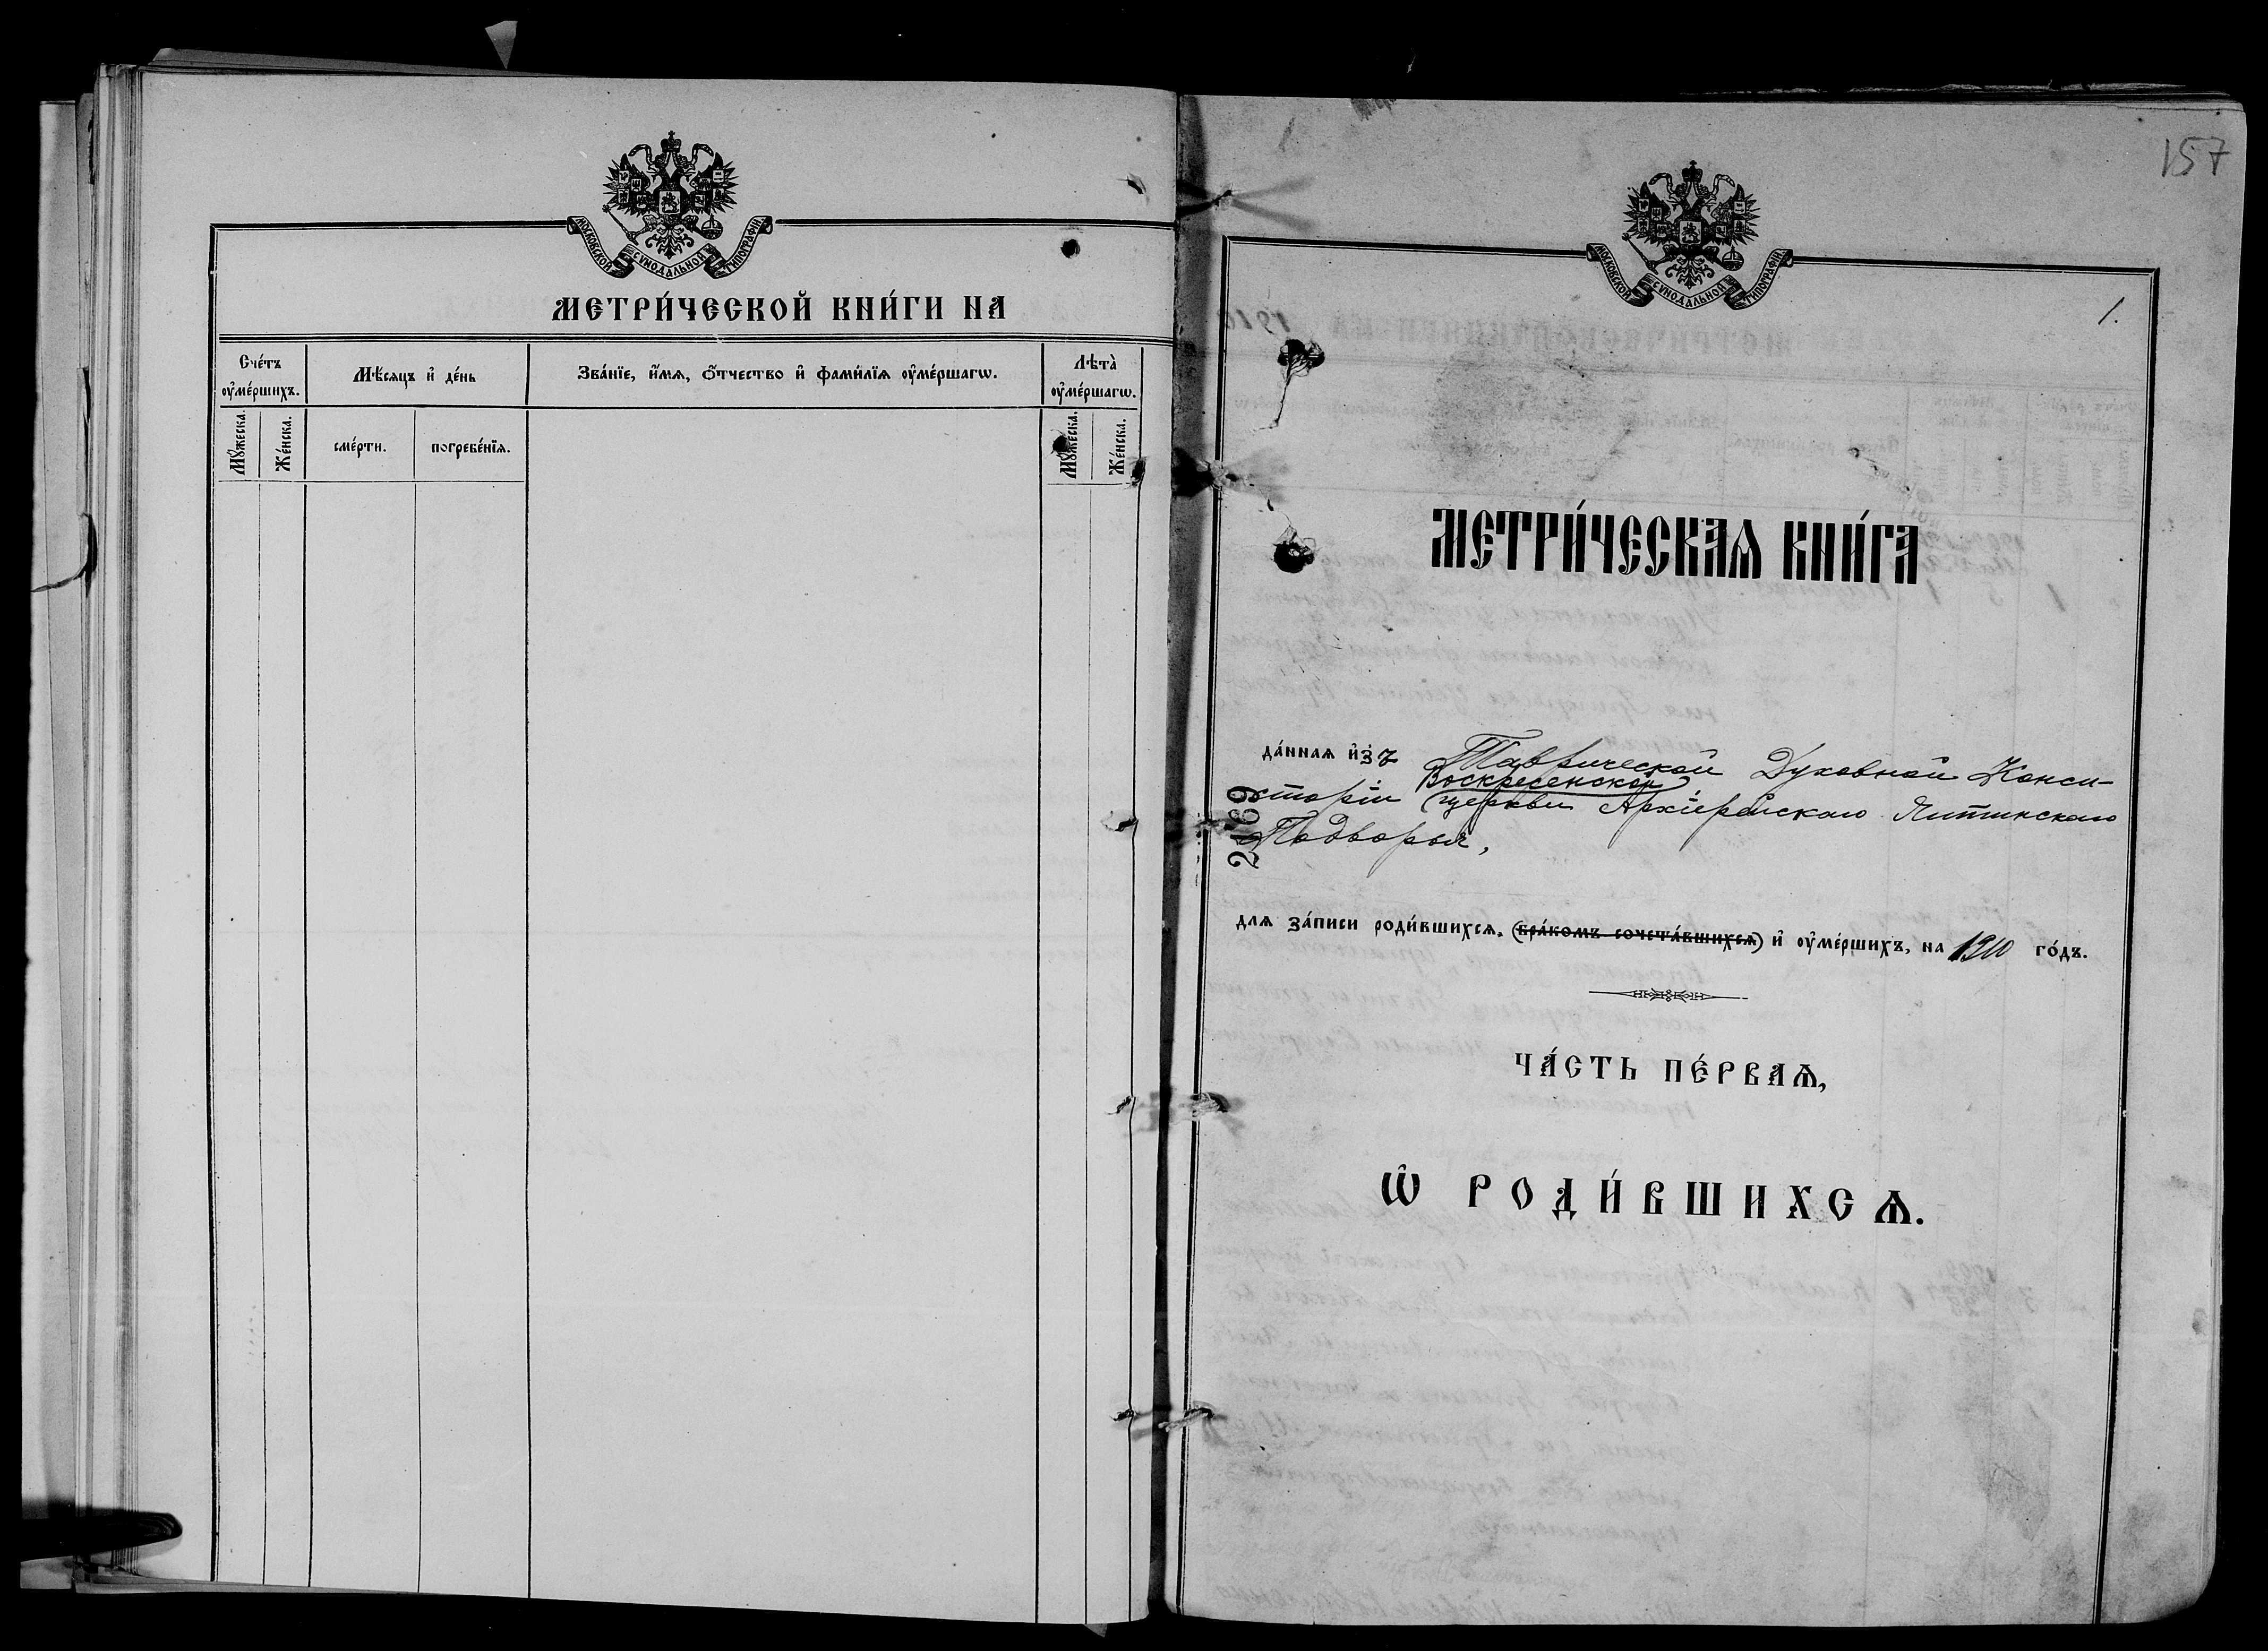 МОСКОВСКОЙ СѴНОДАЛЬНОЙ ТИПОГРАФІИ
МЕТРИ́ЧЕСКОЙ КНИ́ГИ НА
Сче́тъ оу҆ме́ршихъ.
Мѣ́сяцъ и҆ де́нь
Зва́нїе, и҆́мѧ, ѻ҆́тчество и҆ фами́лїѧ оу҆ме́ршагѡ.
Лѣта̀ оу҆ме́ршагѡ.
Мꙋ́жеска.
Же́нска.
сме́рти.
погребе́нїѧ.
Мꙋ́жеска.
Же́нска.
157
МОСКОВСКОЙ СѴНОДАЛЬНОЙ ТИПОГРАФІИ
1.
МЕТРИ́ЧЕСКАѦ КНИ́ГА
да́ннаѧ и҆зъ Таврической Духовной Конси-
Воскресенской
сторіи церкви Архіерейскаго Ялтинскаго
Подворья,
2469
длѧ за́писи роди́вшихсѧ, (бра́комъ сочета́вшихсѧ) и҆ оу҆ме́ршихъ, на 1910 го́дъ.
ЧА́СТЬ ПЕ́РВАѦ,
Ѡ҆ РОДИ́ВШИХСѦ.